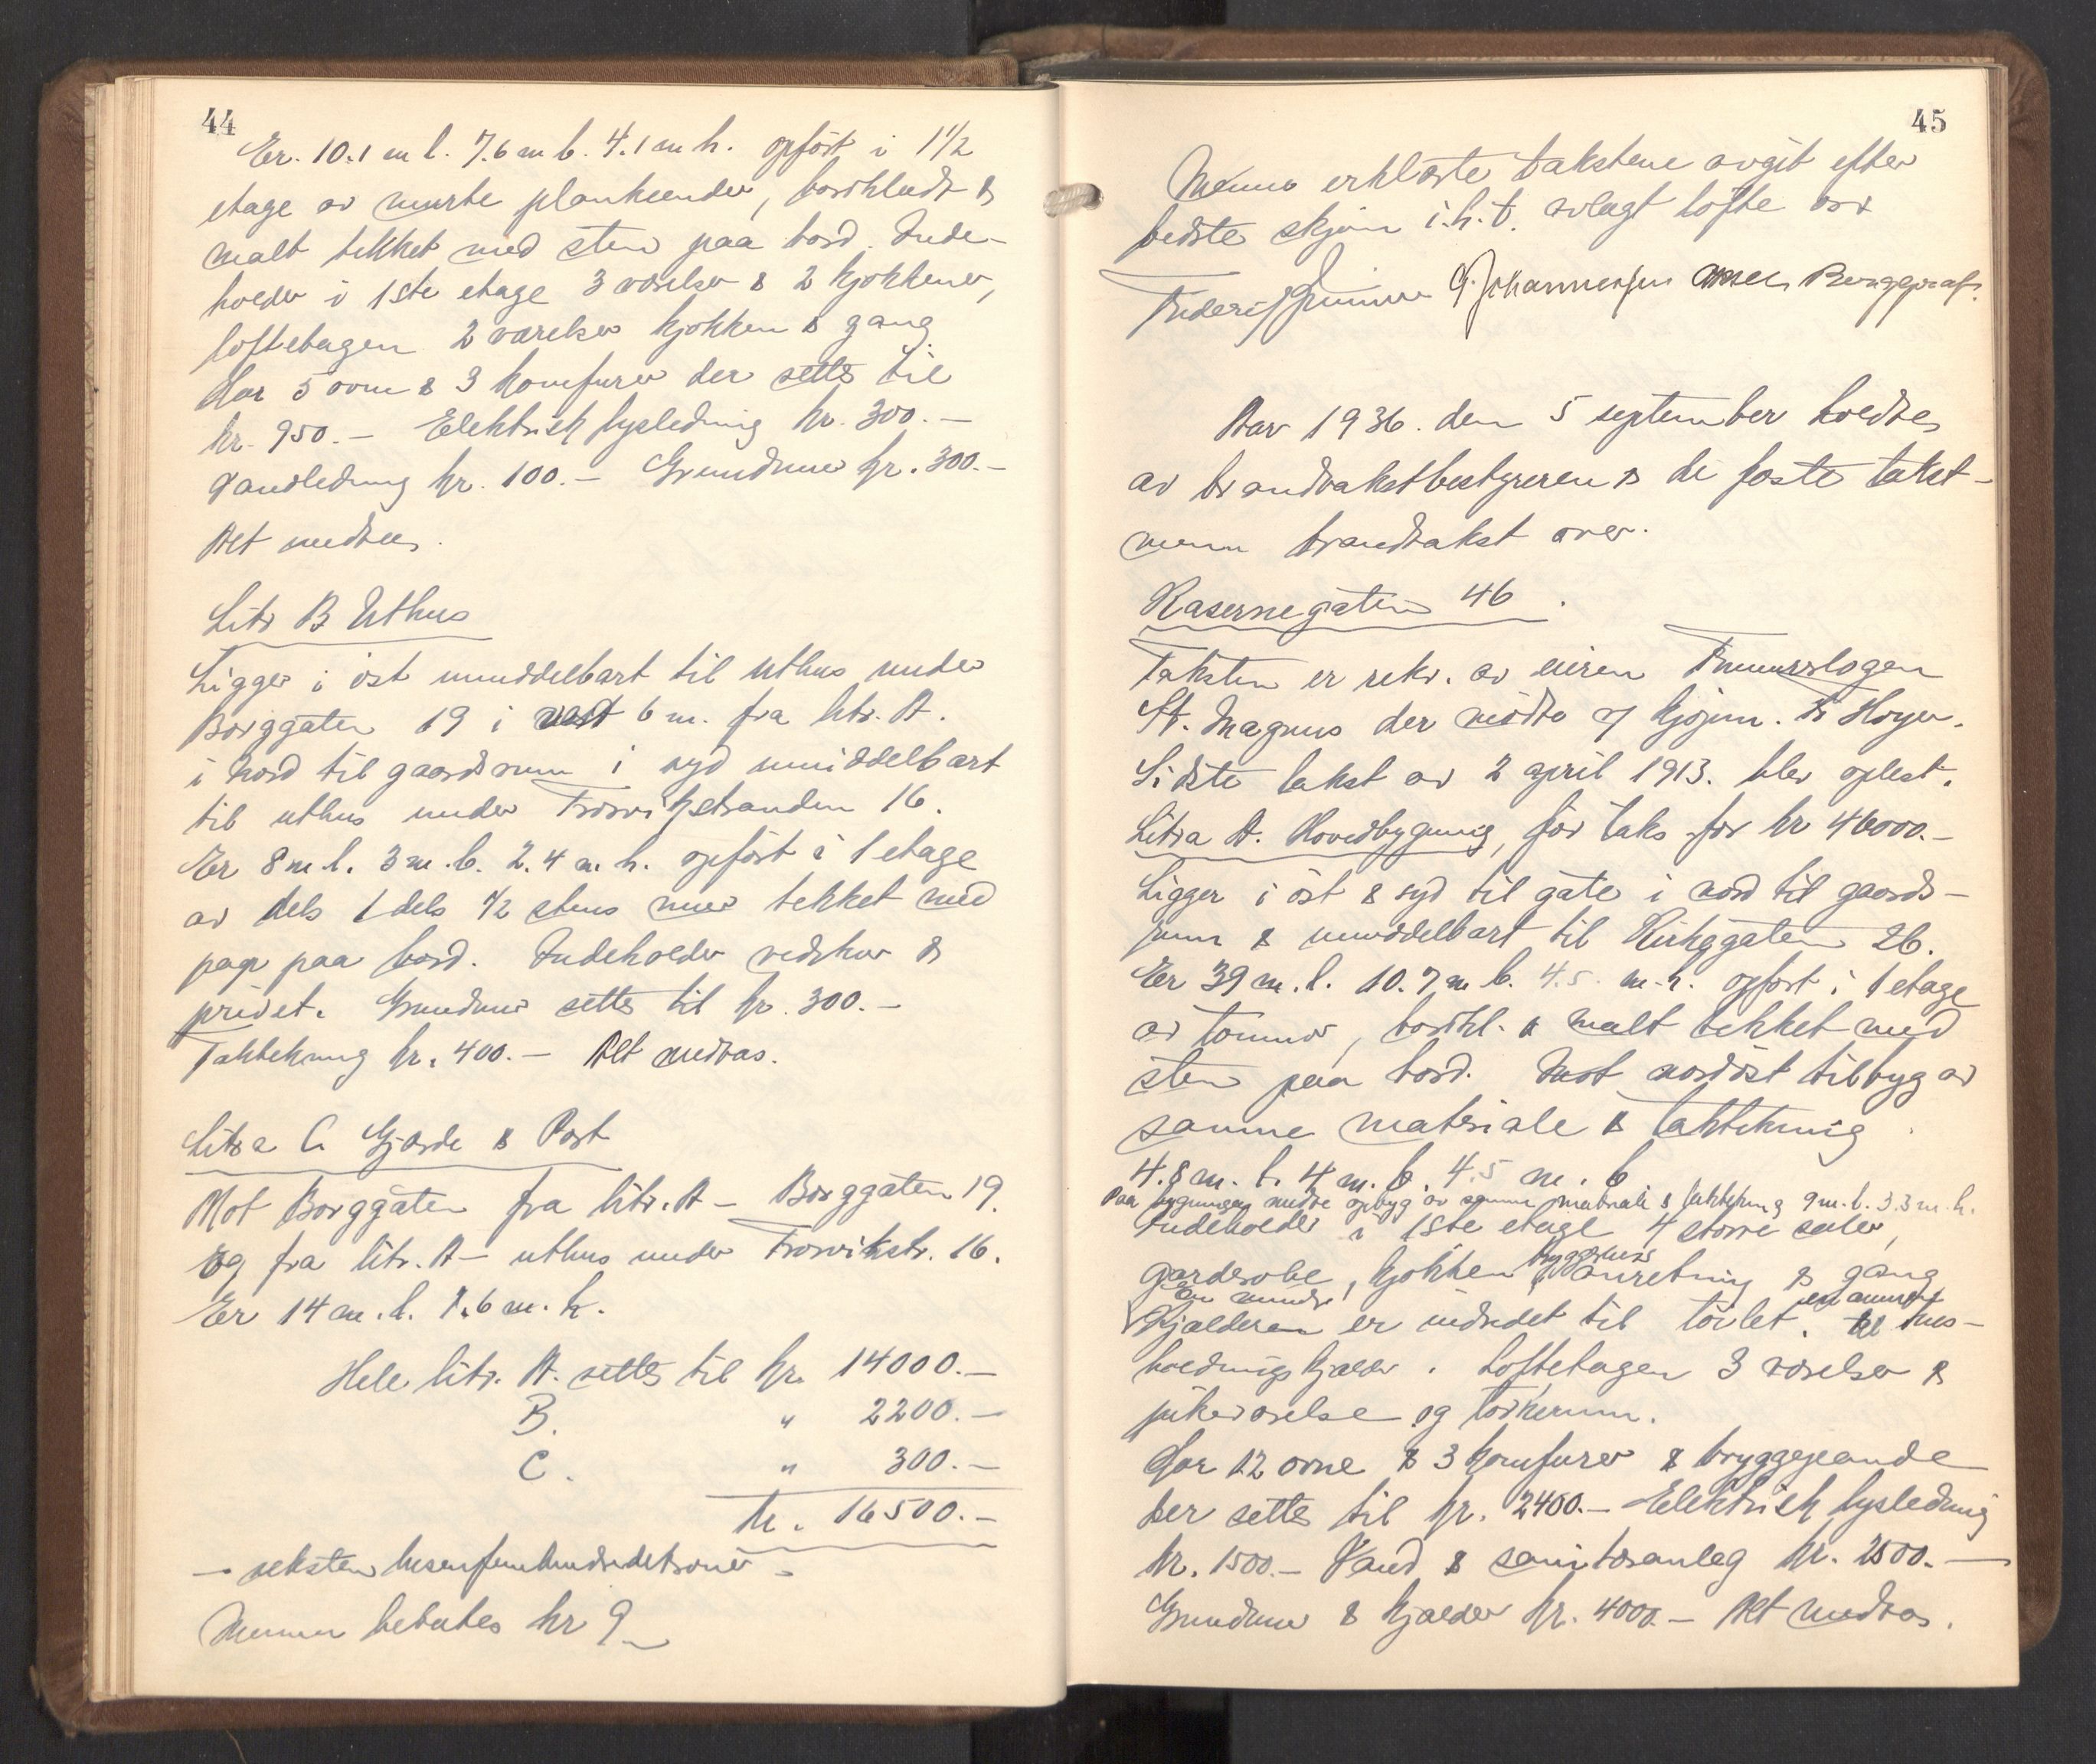 44
Er. 10.1 m l. 7.6 m b. 4.1 m h. opført i 1 1/2
etage av murte plankeender, bordklædt &
malt tekket med sten paa bord. Inde-
holder i 1ste etage 3 værelser & 2 kjøkkener,
loftetagen 2 værelser kjøkken & gang.
Har 5 ovne & 3 komfurer der settes til
kr. 950.- Elektrisk lysledning kr. 300.-
Vandledning kr. 100.- Grundmur kr. 300.-
Alt medtas.
Litr B Uthus
Ligger i øst umiddelbart til uthus under
Borggaten 19 i vest 6 m. fra litr. A.
i nord til gaardsrum i syd umiddelbart
til uthus under Trosvikstranden 16.
Er 8 m. l. 3 m. b. 2.4 m. h. opført i 1 etage
av dels 1 dels 1/2 stens mur tekket med
papp paa bord. Indeholder vedskur &
privet. Grundmur settes til kr. 300.-
Taktekning kr. 400.- Alt medtas.
Litra C. Gjærde & Port
Mot Borggaten fra litr. A - Borggaten 19.
og fra litr. A - uthus under Trosvikstr. 16.
Er 14 m. l. 1.6 m. h.
Hele litr. A. settes til kr. 14000.-
B. " 2200.-
C. " 300.-
kr. 16500.-
- seksten tusen fem hundrede kroner -
Mennene betaltes kr 9-
45
Mennene erklærte taksterne avgit efter
bedste skjøn i.h.t. avlagt løfte
G. Johannessen Berggraf.
Aar 1936. den 5 september holdtes
av brandtakstbestyreren & de faste takst-
menn brandtakst over.
Kasernegaten 46.
Taksten er rekv. av eieren Frimurerlogen
St. Magnus der møtte v/ kjøpm. Fr Høyer.
Sidste takst av 2 april 1913. blev oplest.
Litra A. Hovedbygning, før takst for kr 46000.-
Ligger i øst & syd til gate i nord til gaards-
rum & umiddelbart til Kirkegaten 26.
Er 39 m. l. 10.7 m b. 4.5 m. h. opført i 1 etage
av tømmer, bordkl. & malt tekket med
sten paa bord. Mot nordøst tilbyg av
samme materiale & taktekning.
4.8 m. l. 4 m. b. 4.5 m. h
Paa bygningen midtre opbyg av samme materiale & taktekning 9 m. l. 3.3 m. h.
Indeholder i 1ste etage 4 større saler,
garderobe, kjøkken, bryggerhus anretning & gang
En mindre
Kjælderen er indredet til toilet. en annen til hus-
holdningskjælder. Loftetagen 3 værelser &
pikeværelse og tørkerum.
Har 12 ovne & 3 komfurer & bryggepande
der settes til kr. 2400.- Elektrisk lysledning
kr. 1500.- Vand & sanitæranlæg kr. 2500.-
Grundmur & kjælder kr. 4000.- Alt medtas.